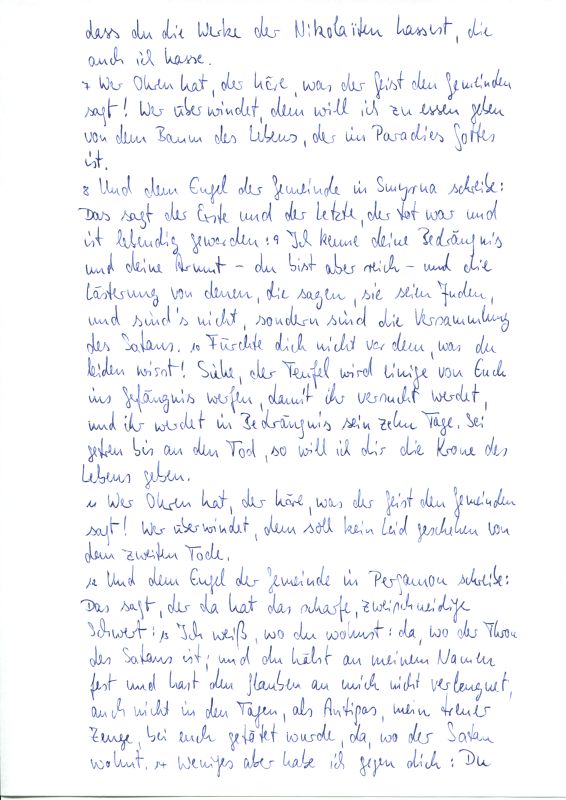 dass du die Werke der Nikolaiten hassest, die
auch ich hasse.
7 Wer Ohren hat, der höre, was der Geist den Gemeinden
sagt! Wer überwindet, dem will ich zu essen geben
von dem Baum des Lebens, der im Paradies Gottes
ist.
8 Und dem Engel der Gemeinde in Smyrna schreibe:
Das sagt der Erste und der Letzte, der tot war und
ist lebendig geworden: 9 Ich kenne deine Bedrängnis
und deine Armut – du bist aber reich – und die
Lästerung von denen, die sagen, sie seien Juden,
und sind's nicht, sondern sind die Versammlung
des Satans. 10 Fürchte dich nicht vor dem, was du
leiden wirst! Siehe, der Teufel wird einige von Euch
ins Gefängnis werfen, damit ihr versucht werdet,
und ihr werdet in Bedrängnis sein zehn Tage. Sei
getreu bis an den Tod, so will ich dir die Krone des
Lebens geben.
11 Wer Ohren hat, der höre, was der Geist den Gemeinden
sagt! Wer überwindet, dem soll kein Leid geschehen von
dem zweiten Tode.
12 Und dem Engel der Gemeinde in Pergamon schreibe:
Das sagt, der da hat das scharfe, zweischneidige
Schwert: 13 Ich weiß, wo du wohnst: da, wo der Thron
des Satans ist; und du hältst an meinem Namen
fest und hast den Glauben an mich nicht verleugnet,
auch nicht in den Tagen, als Antipas, mein treuer
Zeuge, bei euch getötet wurde, da, wo der Satan
wohnt. 14 Weniges aber habe ich gegen dich: Du